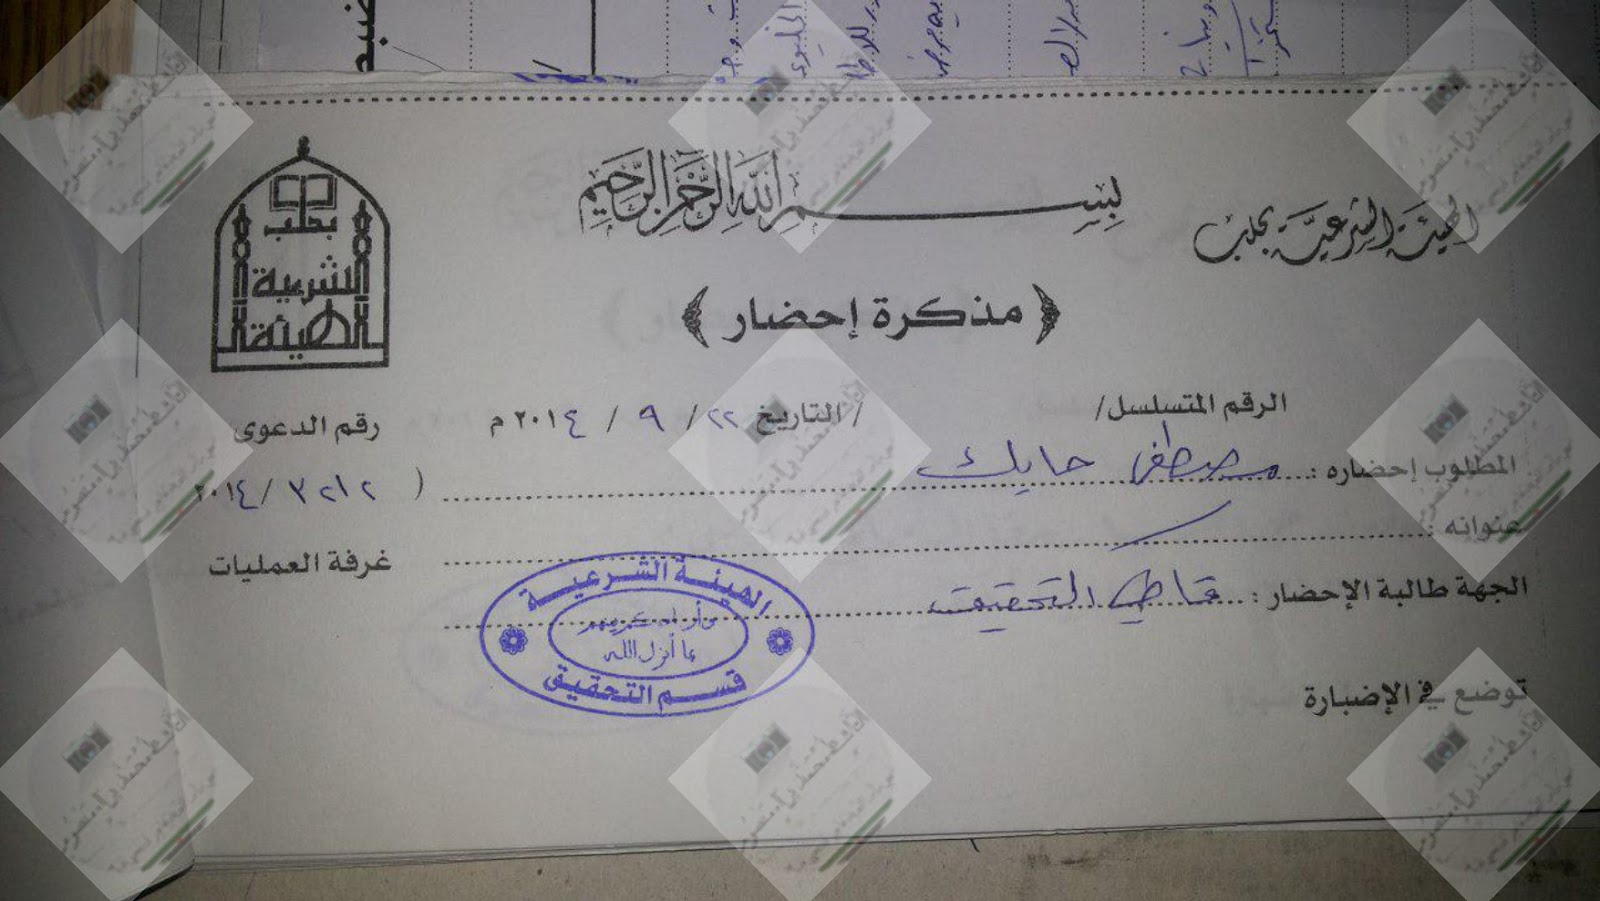 بسم الله الرحمن الرحيم
الهيئة الشرعية بحلب
بحلب
الشرعية
الهيئة
﴿ مذكرة إحضار ﴾
الرقم المتسلسل/ / التاريخ ٢٢ / ٩ / ٢٠١٤ م
رقم الدعوى
المطلوب إحضاره : مصطفى حايك
( ٣٢١٢ / ٢٠١٤
عنوانه :
غرفة العمليات
الجهة طالبة الإحضار : قاضي التحقيق
الهيئة الشرعية
بما أنزل الله
قسم التحقيق
توضع في الإضبارة